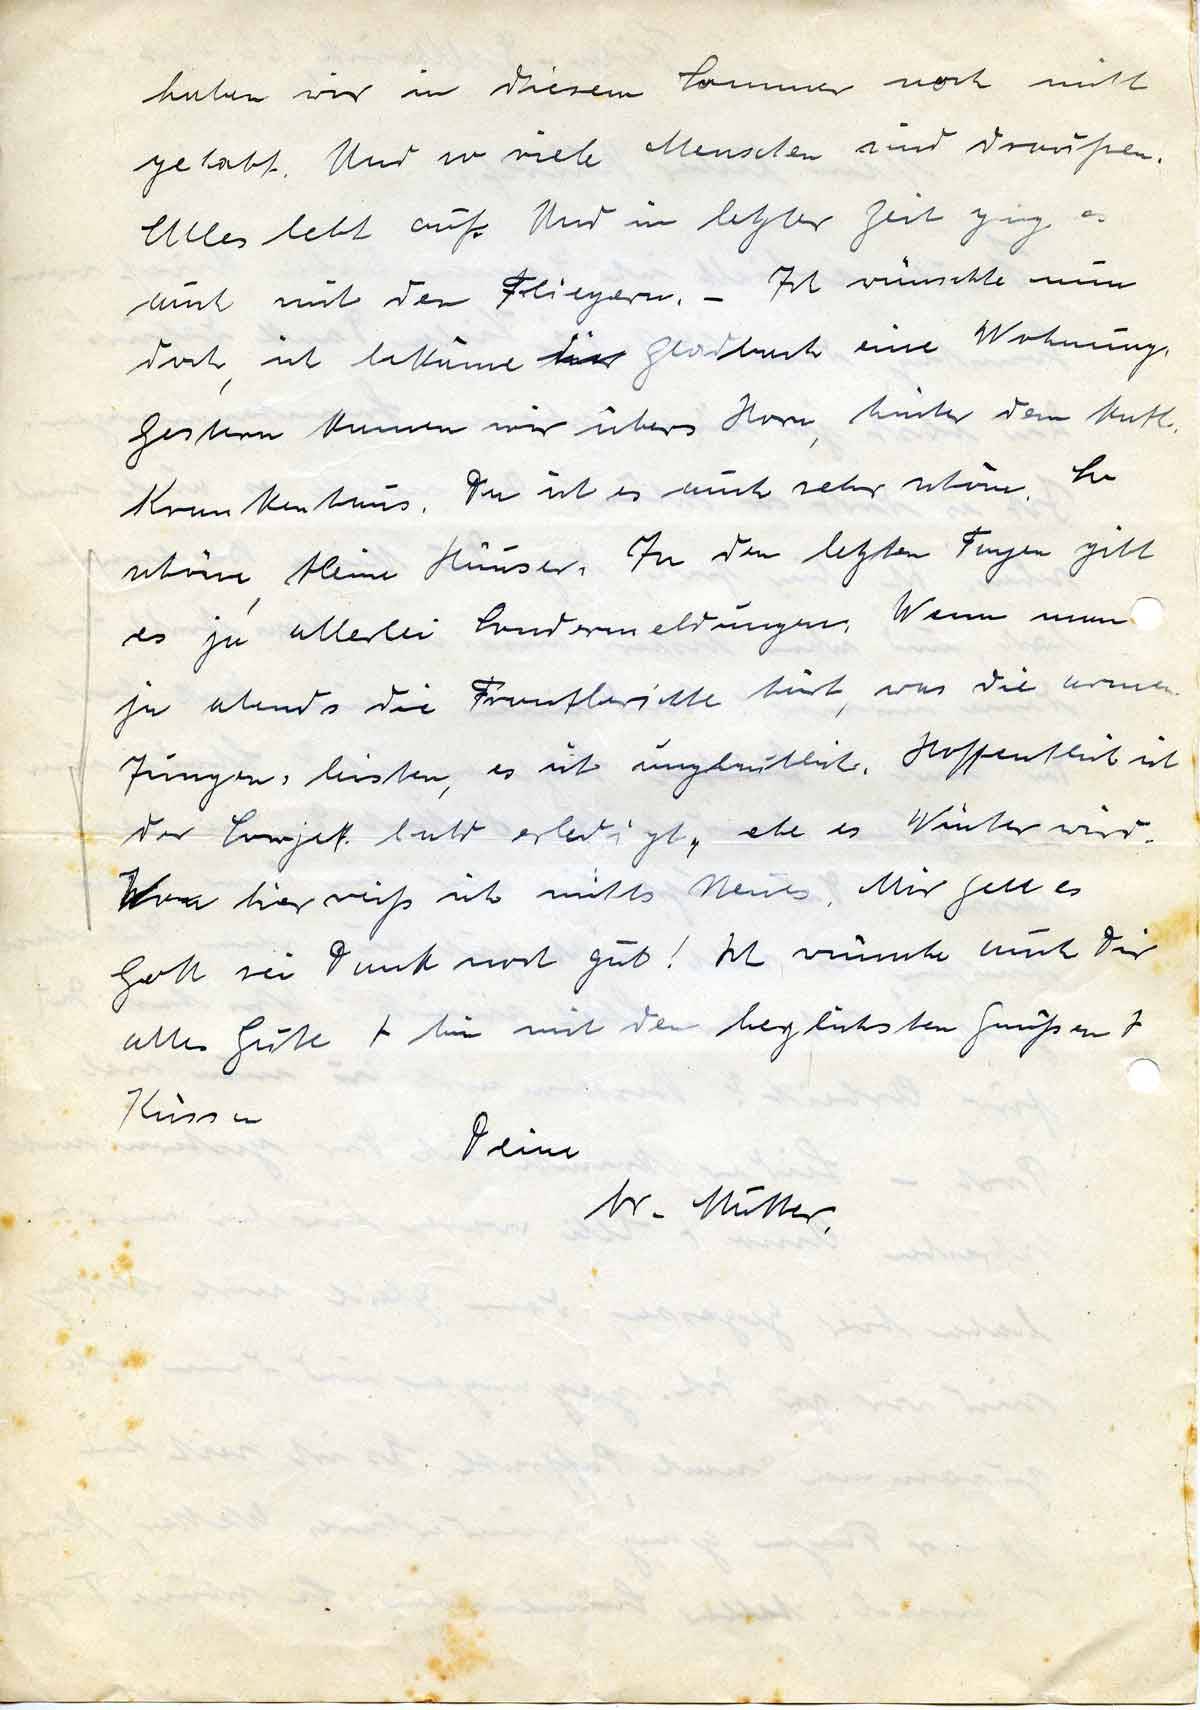 haben wir in diesem Sommer noch nicht
gehabt. Und so viele Menschen sind draußen.
Alles lebt auf. Und in letzter Zeit ging es
auch mit den Fliegern. – Ich wünschte nun
doch, ich bekäme Gladbach eine Wohnung.
Gestern kamen wir übers Horn, hinter dem kath.
Krankenhaus. Da ist es auch sehr schön. So
schöne, kleine Häuser. In den letzten Tagen gibt
es ja allerlei Sondermeldungen. Wenn man
ja abends die Frontberichte hört, was die armen
Jungens leisten, es ist unglaublich. Hoffentlich ist
der Sowjet. bald erledigt, ehe es Winter wird.
Von hier weiß ich nichts Neues. Mir geht es
Gott sei Dank noch gut! Ich wünsche auch Dir
alles Gute + bin mit den herzlichsten Grüßen +
Küssen
Deine
Mutter.